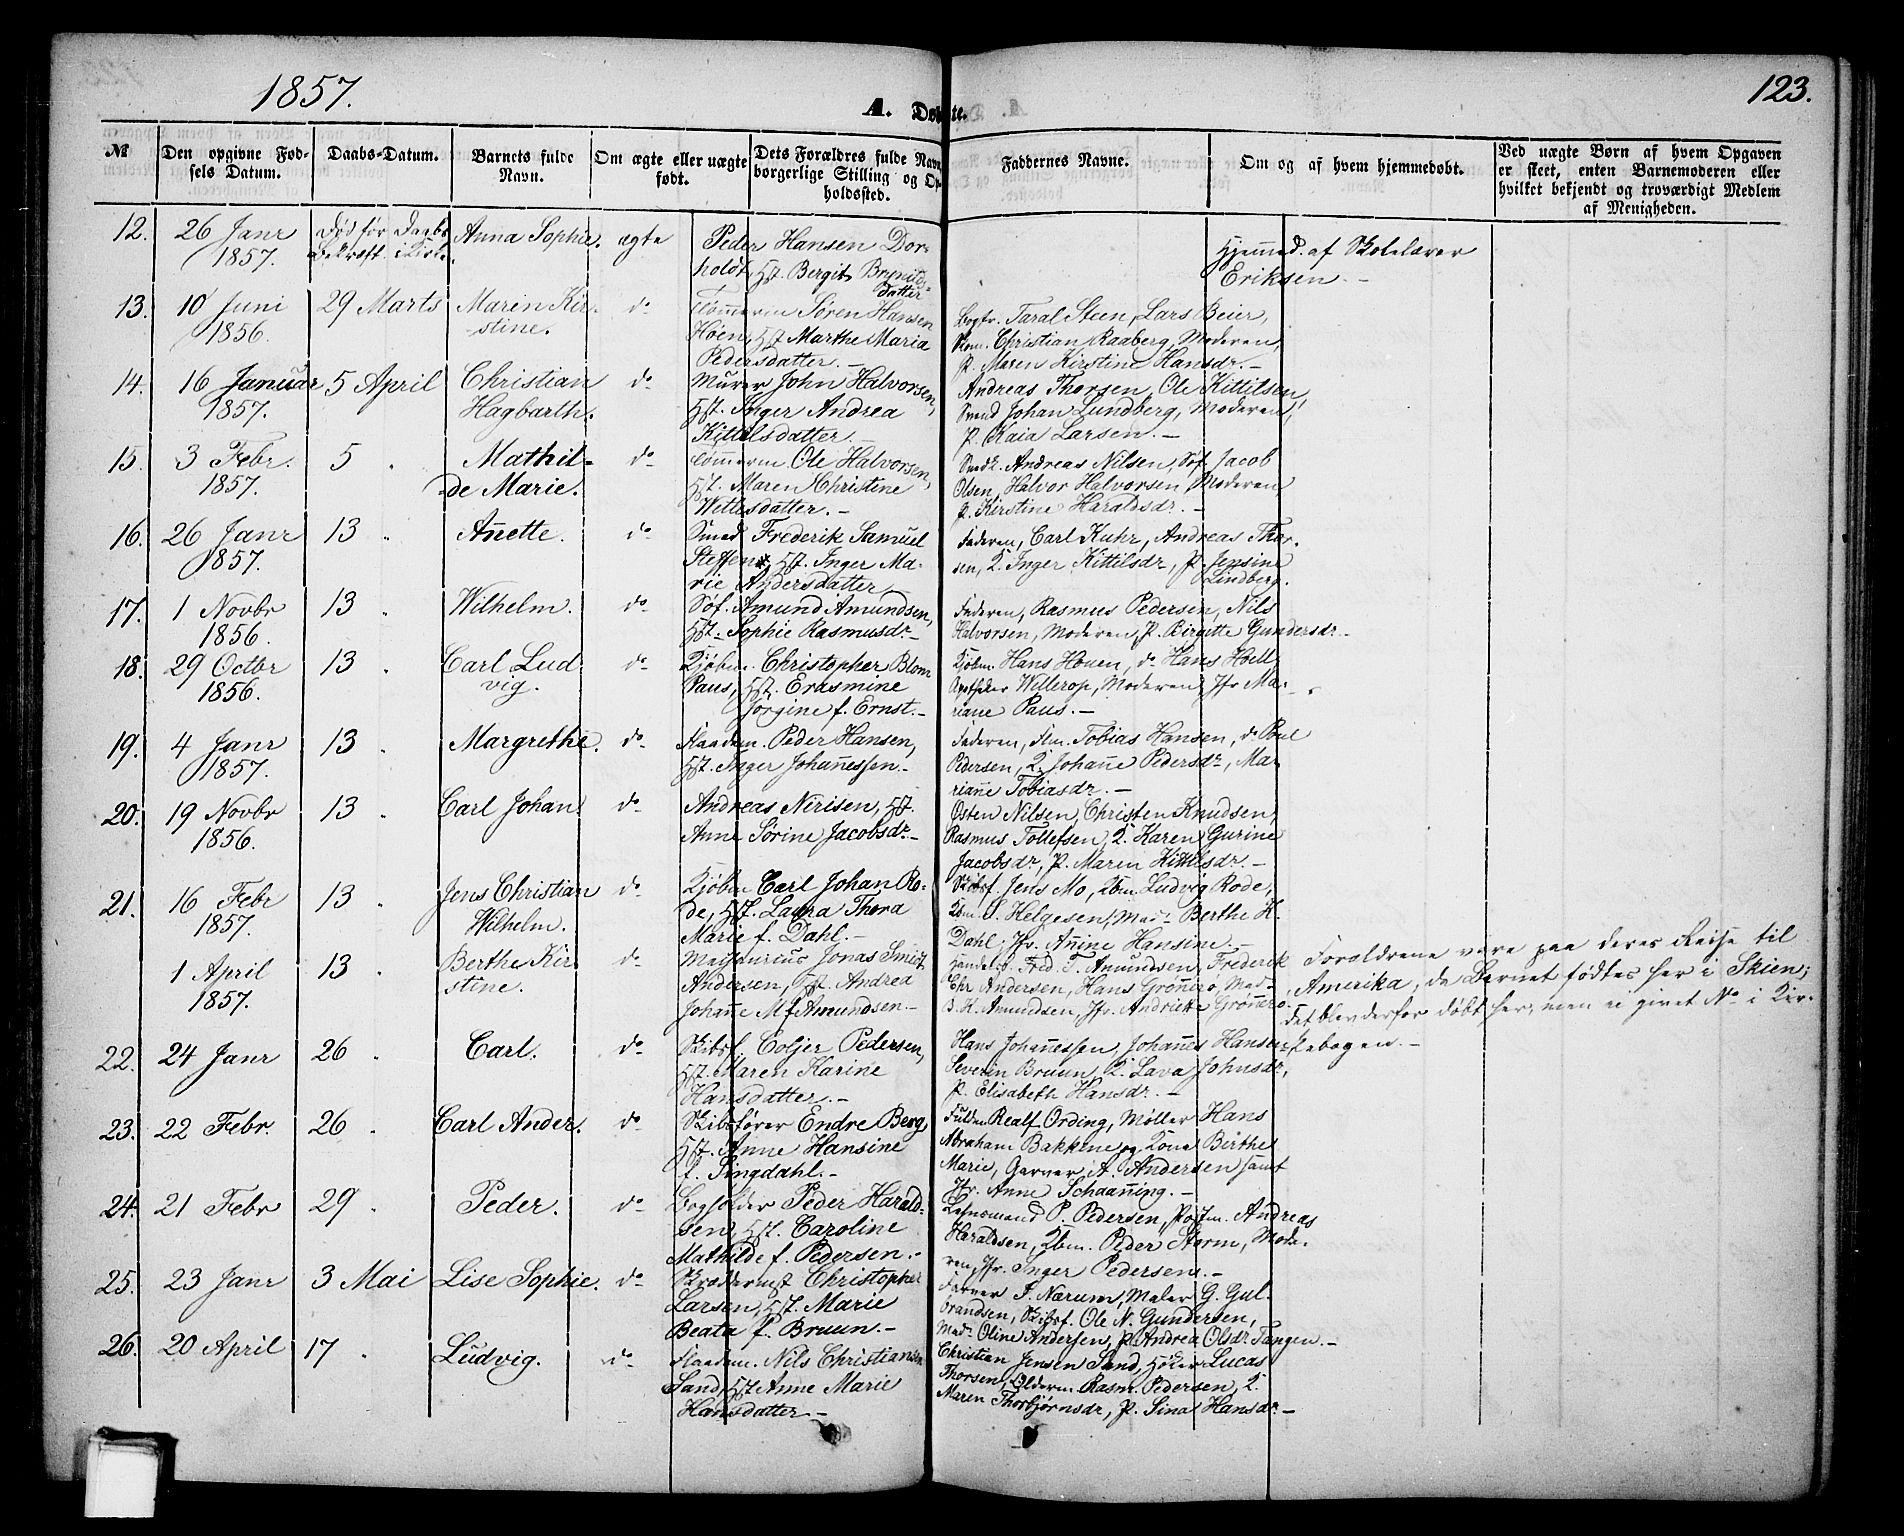 1857.
A. Døbte.
123.
№
Den opgivne Fød-
sels Datum.
Daabs-Datum.
Barnets fulde
Navn.
Om ægte eller uægte
født.
Dets Forældres fulde Navn
borgerlige Stilling og Op-
holdssted.
Faddernes Navne.
Om og af hvem hjemmedøbt.
Ved uægte Børn af hvem Opgaven
er skeet, enten Barnemoderen eller
hvilket bekjendt og troværdigt Medlem
af Menigheden.
12. 26 Janr 1857.
Død før Daabs
Bekræft. i Kirke.
Anna Sophie.
ægte
Peder Hansen Dor-
holdt, Hst. Bergit Brynilds-
datter
Hjemmed. af Skolelærer
Eriksen. –
13. 10 Juni 1856.
29 Marts
Maren Kir-
stine.
do
Tømmerm Søren Hansen
Høen, Hst Marthe Maria
Pedersdatter. –
Bogtr. Taral Steen, Lars Beier,
Christian Raaberg, Moderen,
P. Maren Kirstine Hansdr. –
14. 16 Januar 1857.
5 April
Christian
Hagbarth.
do
Murer John Halvorsen,
Hst. Inger Andrea
Kittilsdatter. –
Andreas Thorsen, Ole Kittilsen,
Svend Johan Lundberg, Moderen,
P. Kaia Larsen. –
15. 3 Febr. 1857.
5 "
Mathil-
de Marie.
do
Tømmerm Ole Halvorsen,
Hst. Maren Christine
Wetlesdatter. –
Smedk. Andreas Nilsen, Søf. Jacob
Olsen, Halvor Halvorsen, Moderen,
P. Kirstine Haraldsdr. –
16. 26 Janr 1857.
13 "
Anette.
do
Smed Frederik Samuel
Steffens, Hst. Inger Ma-
rie Andersdatter
Faderen, Carl Kuhr, Andreas Thor-
sen, K. Inger Kittilsdr, P. Jensine
Lindberg.
17. 1 Novbr 1856.
13 "
Wilhelm.
do
Søf. Amund Amundsen,
Hst. Sophie Rasmusdr –
Faderen, Rasmus Pedersen, Nils
Halvorsen, Moderen, P. Birgitte Gundersdr –
18. 29 Octbr 1856.
13 "
Carl Lud-
vig.
do
Kjøbm. Christopher Blom
Paus, Hst. Erasmine
Jørgine f. Ernst. –
Kjøbm. Hans Houen, do Hans Holl,
Apotheker Willerop, Moderen, Jfr Ma-
riane Paus. –
19. 4 Janr 1857.
13 "
Margrethe.
do
Flaadem. Peder Hansen,
Hst. Inger Johannessen. –
Faderen, Flm. Tobias Hansen, do Poul
Pedersen, K. Johanne Pedersdr, Ma-
rianne Tobiasdr. –
20. 19 Novbr 1856.
13 "
Carl Johan.
do
Andreas Nirisen, Hst.
Anne Sørine Jacobsdr –
Østen Nilsen, Christen Knudsen,
Rasmus Tollefsen, K. Karen Gurine
Jacobsdr, P. Maren Kittilsdr. –
21. 16 Febr 1857.
13 "
Jens Christian
Wilhelm.
do
Kjøbm Carl Johan Ro-
de, Hst. Laura Thora
Marie f. Dahl. –
Skibsf. Jens Mo, Kbm. Ludvig Rode,
Kbm. S. Helgesen, Madm Berthe K.
Dahl, Jfr. Anine Hansine. –
1 April 1857.
13 "
Berthe Kir-
stine.
do
Jonas Smidt
Andersen, Hst. Andrea
Johanne M. f. Amundsen. –
Handelsb. Fred. T. Amundsen, Frederik
Chr Andersen, Hans Grønnerø, Mad-
B. K. Amundsen, Jfr. Andrikke Grønnerø.
Forældrene vare paa deres Reise til
Amerika, da Barnet fødtes her i Skien;
det blev derfor døbt her, men ei givet No i Kir-
kebogen. –
22. 24 Janr
26 "
Carl.
do
Skibsf. Coljer Pedersen,
Hst. Maren Karine
Hansdatter. –
Hans Johannessen, Johannes Hansen,
Severin Bruun, K. Lava Johnsdr,
P. Elisabeth Hansdr. –
23. 22 Febr.
26 "
Carl Ander.
do
Skibsfører Endre Berg,
Hst. Anne Hansine
f. Singdahl. –
Fuldm. Realf Ording, Møller Hans
Abraham Bakkene og Kone Birthe
Marie, Garver A. Andersen samt
Jfr. Anne Schaanning. –
24. 21 Febr
29 "
Peder.
do
Bogholder Peder Harald-
sen, Hst. Caroline
Mathilde f. Pedersen. –
Lensmand P. Pedersen, Postm. Andreas
Haraldsen, Kbm. Peder Storm, Mode-
ren, Jfr. Inger Pedersen. –
25. 23 Janr
3 Mai
Lise Sophie.
do
Skrædermst Christopher
Larsen, Hst. Marie
Beata f. Bruun. –
Farver J. Nærum, Maler G. Gul-
brandsen, Skibsf. Ole N. Gundersen,
Madm Oline Andersen, P. Andrea Olsdr Tangen. –
26. 20 April
17 "
Ludvig.
do
Flaadem. Nils Christiansen
Sand, Hst Anne Marie
Hansdatter –
Christian Jensen Sand, Høker Lucas
Thorsen, Olderm. Rasm. Pedersen, K.
Maren Thorbjørnsdr, P. Sina Hansdr. –